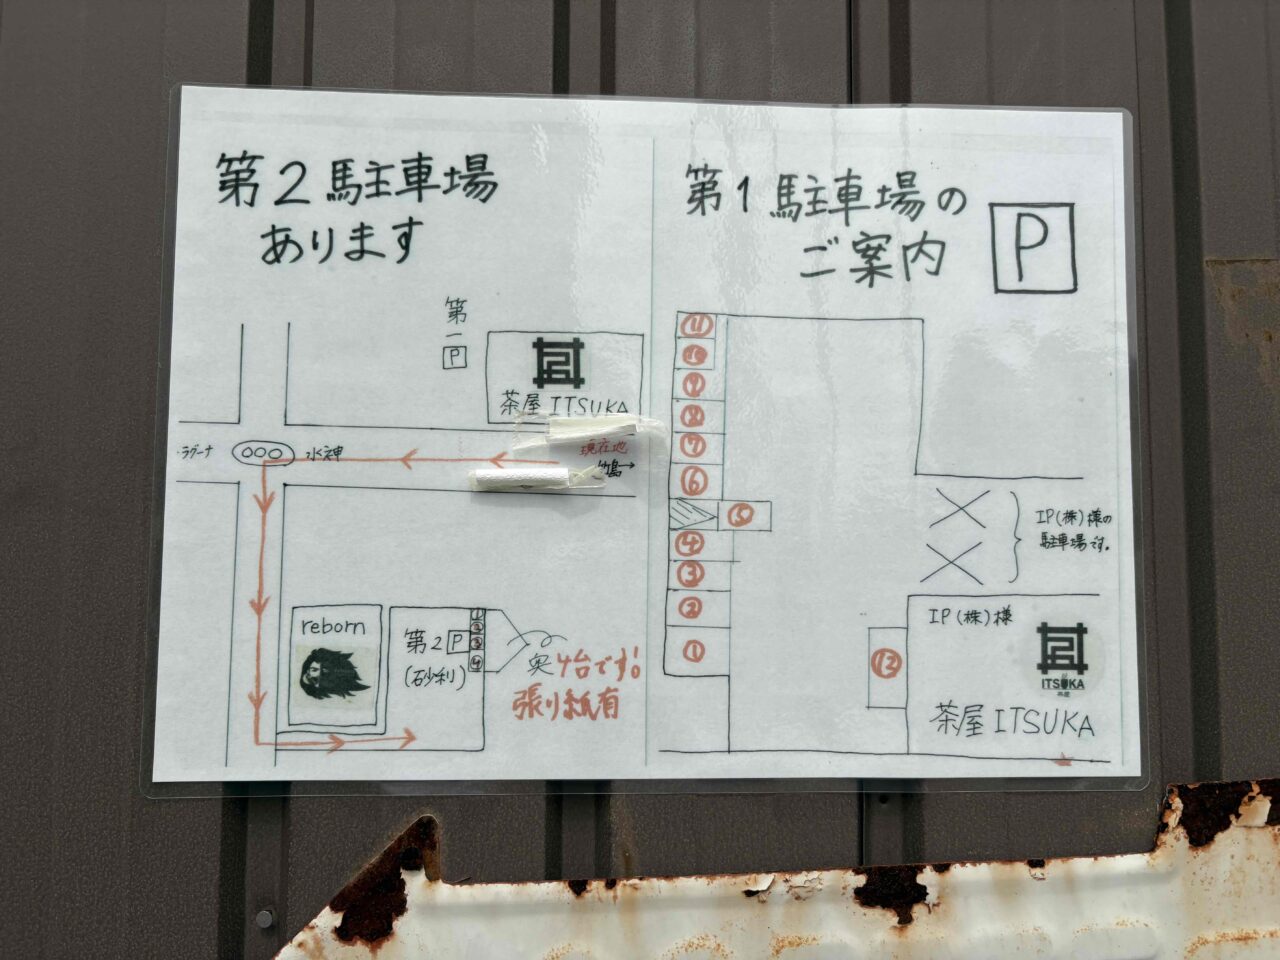 第2駐車場
あります
第一
P
茶屋 ITSUKA
ラグーナ
水神
現在地
竹島→
reborn
第2 P
(砂利)
①
②
③
④
奥4台です!
張り紙有
第1駐車場の
ご案内
P
⑪
⑩
⑨
⑧
⑦
⑥
⑤
④
③
②
①
⑫
IP(株)様の
駐車場です。
IP(株)様
ITSUKA
茶屋 ITSUKA